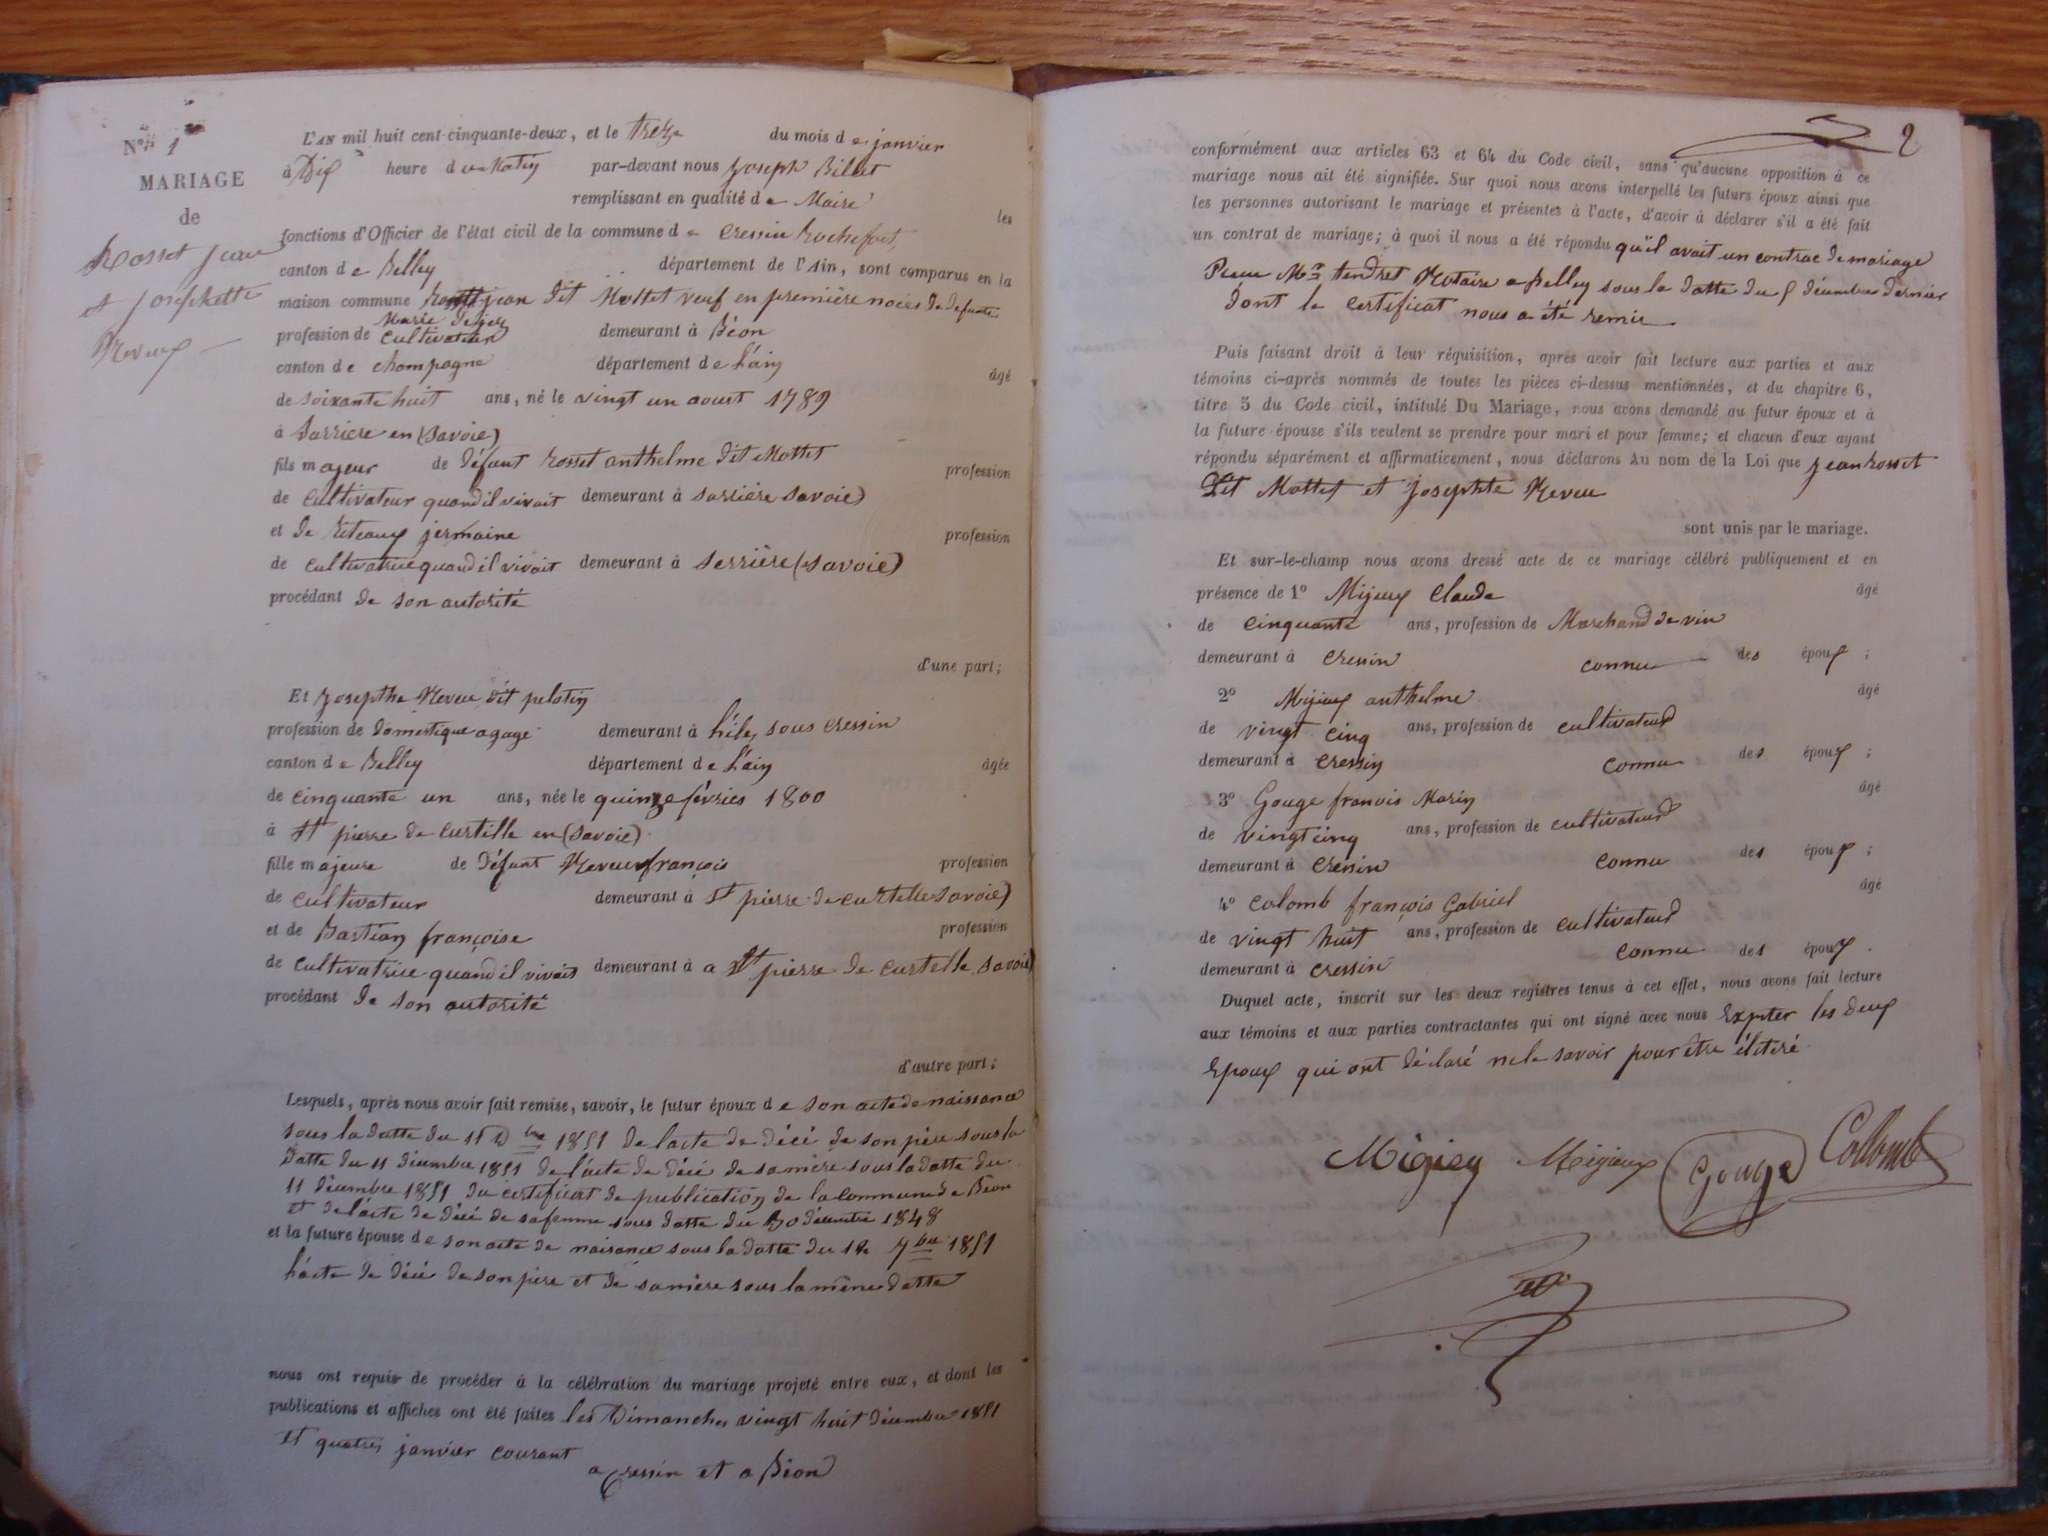 N° 1
MARIAGE
de
Rosset jean
et josephette
Neveux
L'AN mil huit cent cinquante-deux, et le treze du mois de janvier
à Dix heure du Matin par-devant nous Joseph Billiet
remplissant en qualité de Maire les
fonctions d'Officier de l'état civil de la commune de Cressin Rochefort,
canton de Belley département de l'Ain, sont comparus en la
maison commune Rosset jean dit Mottet veuf en première noces de defunte
Marie
profession de cultivateur demeurant à Béon
canton de champagne département de L'ain âgé
de soixante huit ans, né le vingt un aoust 1789
à Sarriere en (Savoie)
fils majeur de défunt Rosset anthelme dit Mottet profession
de cultivateur quand il vivait demeurant à sarrière savoie)
et de jermaine profession
de cultivatrice quand il vivait demeurant à Serrière (savoie)
procédant de son autorité
d'une part;
Et Josepthe Neveu dit pelatin
profession de domestique agage demeurant à sous cressin
canton de Belley département de L'ain âgée
de cinquante un ans, née le quinze févries 1800
à St pierre de Curtille en (Savoie)
fille majeure de défunt Neveux françois profession
de cultivateur demeurant à St pierre de curtelle savoie)
et de Bastian françoise profession
de cultivatrice quand il vivais demeurant à a St pierre de curtelle savoie)
procédant de son autorité
d'autre part;
Lesquels, après nous avoir fait remise, savoir, le futur époux de son acte de naissance
sous la datte du 11 Dbre 1851 de lacte de déci de son père sous la
datte du 11 décembre 1851 de l'acte de déci de sa mère sous la datte du
11 décembre 1851 du certificat de publication de la commune de Béon
et de lacte de déci de sa femme sous datte du 30 décembre 1848
et la future épouse de son acte de naisance sous la datte du 12 7bre 1851
lacte de déci de son père et de sa mère sous la même datte
nous ont requis de procéder à la célébration du mariage projeté entre eux, et dont les
publications et affiches ont été faites les Dimanches vingt huit décembre 1851
et quatres janvier courant
a Cressin et a Béon
2
conformément aux articles 63 et 64 du Code civil, sans qu'aucune opposition à ce
mariage nous ait été signifiée. Sur quoi nous avons interpellé les futurs époux ainsi que
les personnes autorisant le mariage et présentes à l'acte, d'avoir à déclarer s'il a été fait
un contrat de mariage; à quoi il nous a été répondu qu'il avait un contrac de mariage
Me tendret Notaire a Belley sous la datte du 5 décembre dernier
dont le certificat nous a été remis
Puis faisant droit à leur réquisition, après avoir fait lecture aux parties et aux
témoins ci-après nommés de toutes les pièces ci-dessus mentionnées, et du chapitre 6,
titre 5 du Code civil, intitulé Du Mariage, nous avons demandé au futur époux et à
la future épouse s'ils veulent se prendre pour mari et pour femme; et chacun d'eux ayant
répondu séparément et affirmativement, nous déclarons Au nom de la Loi que jean Rosset
Dit Mottet et Josephte Neveu
sont unis par le mariage.
Et sur-le-champ nous avons dressé acte de ce mariage célébré publiquement et en
présence de 1° Mijeux Claude âgé
de cinquante ans, profession de Marchand de vin
demeurant à cressin connu des époux;
2° Mijieux anthelme âgé
de vingt cinq ans, profession de cultivateur
demeurant à cressin connu des époux;
3° Gouge franois Marin âgé
de vingt cinq ans, profession de cultivateur
demeurant à cressin connu des époux;
4° Colomb françois Gabriel âgé
de vingt huit ans, profession de cultivateur
demeurant à cressin connu des époux.
Duquel acte, inscrit sur les deux registres tenus à cet effet, nous avons fait lecture
aux témoins et aux parties contractantes qui ont signé avec nous Expter les deux
Epoux qui ont déclaré ne le savoir pour être élitéré
Migieux Gouge Collomb